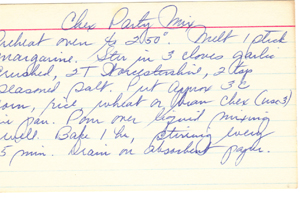 Chex Party Mix
Preheat oven to 250°. Melt 1 stick
margarine. Stir in 3 cloves garlic
crushed, 2T Worcestershire, 2 tsp
seasoned salt. Put approx 3 c
corn, rice, wheat or bran chex (use 3)
in pan. Pour over liquid mixing
well. Bake 1 hr, stirring every
5 min. Drain on absorbent paper.